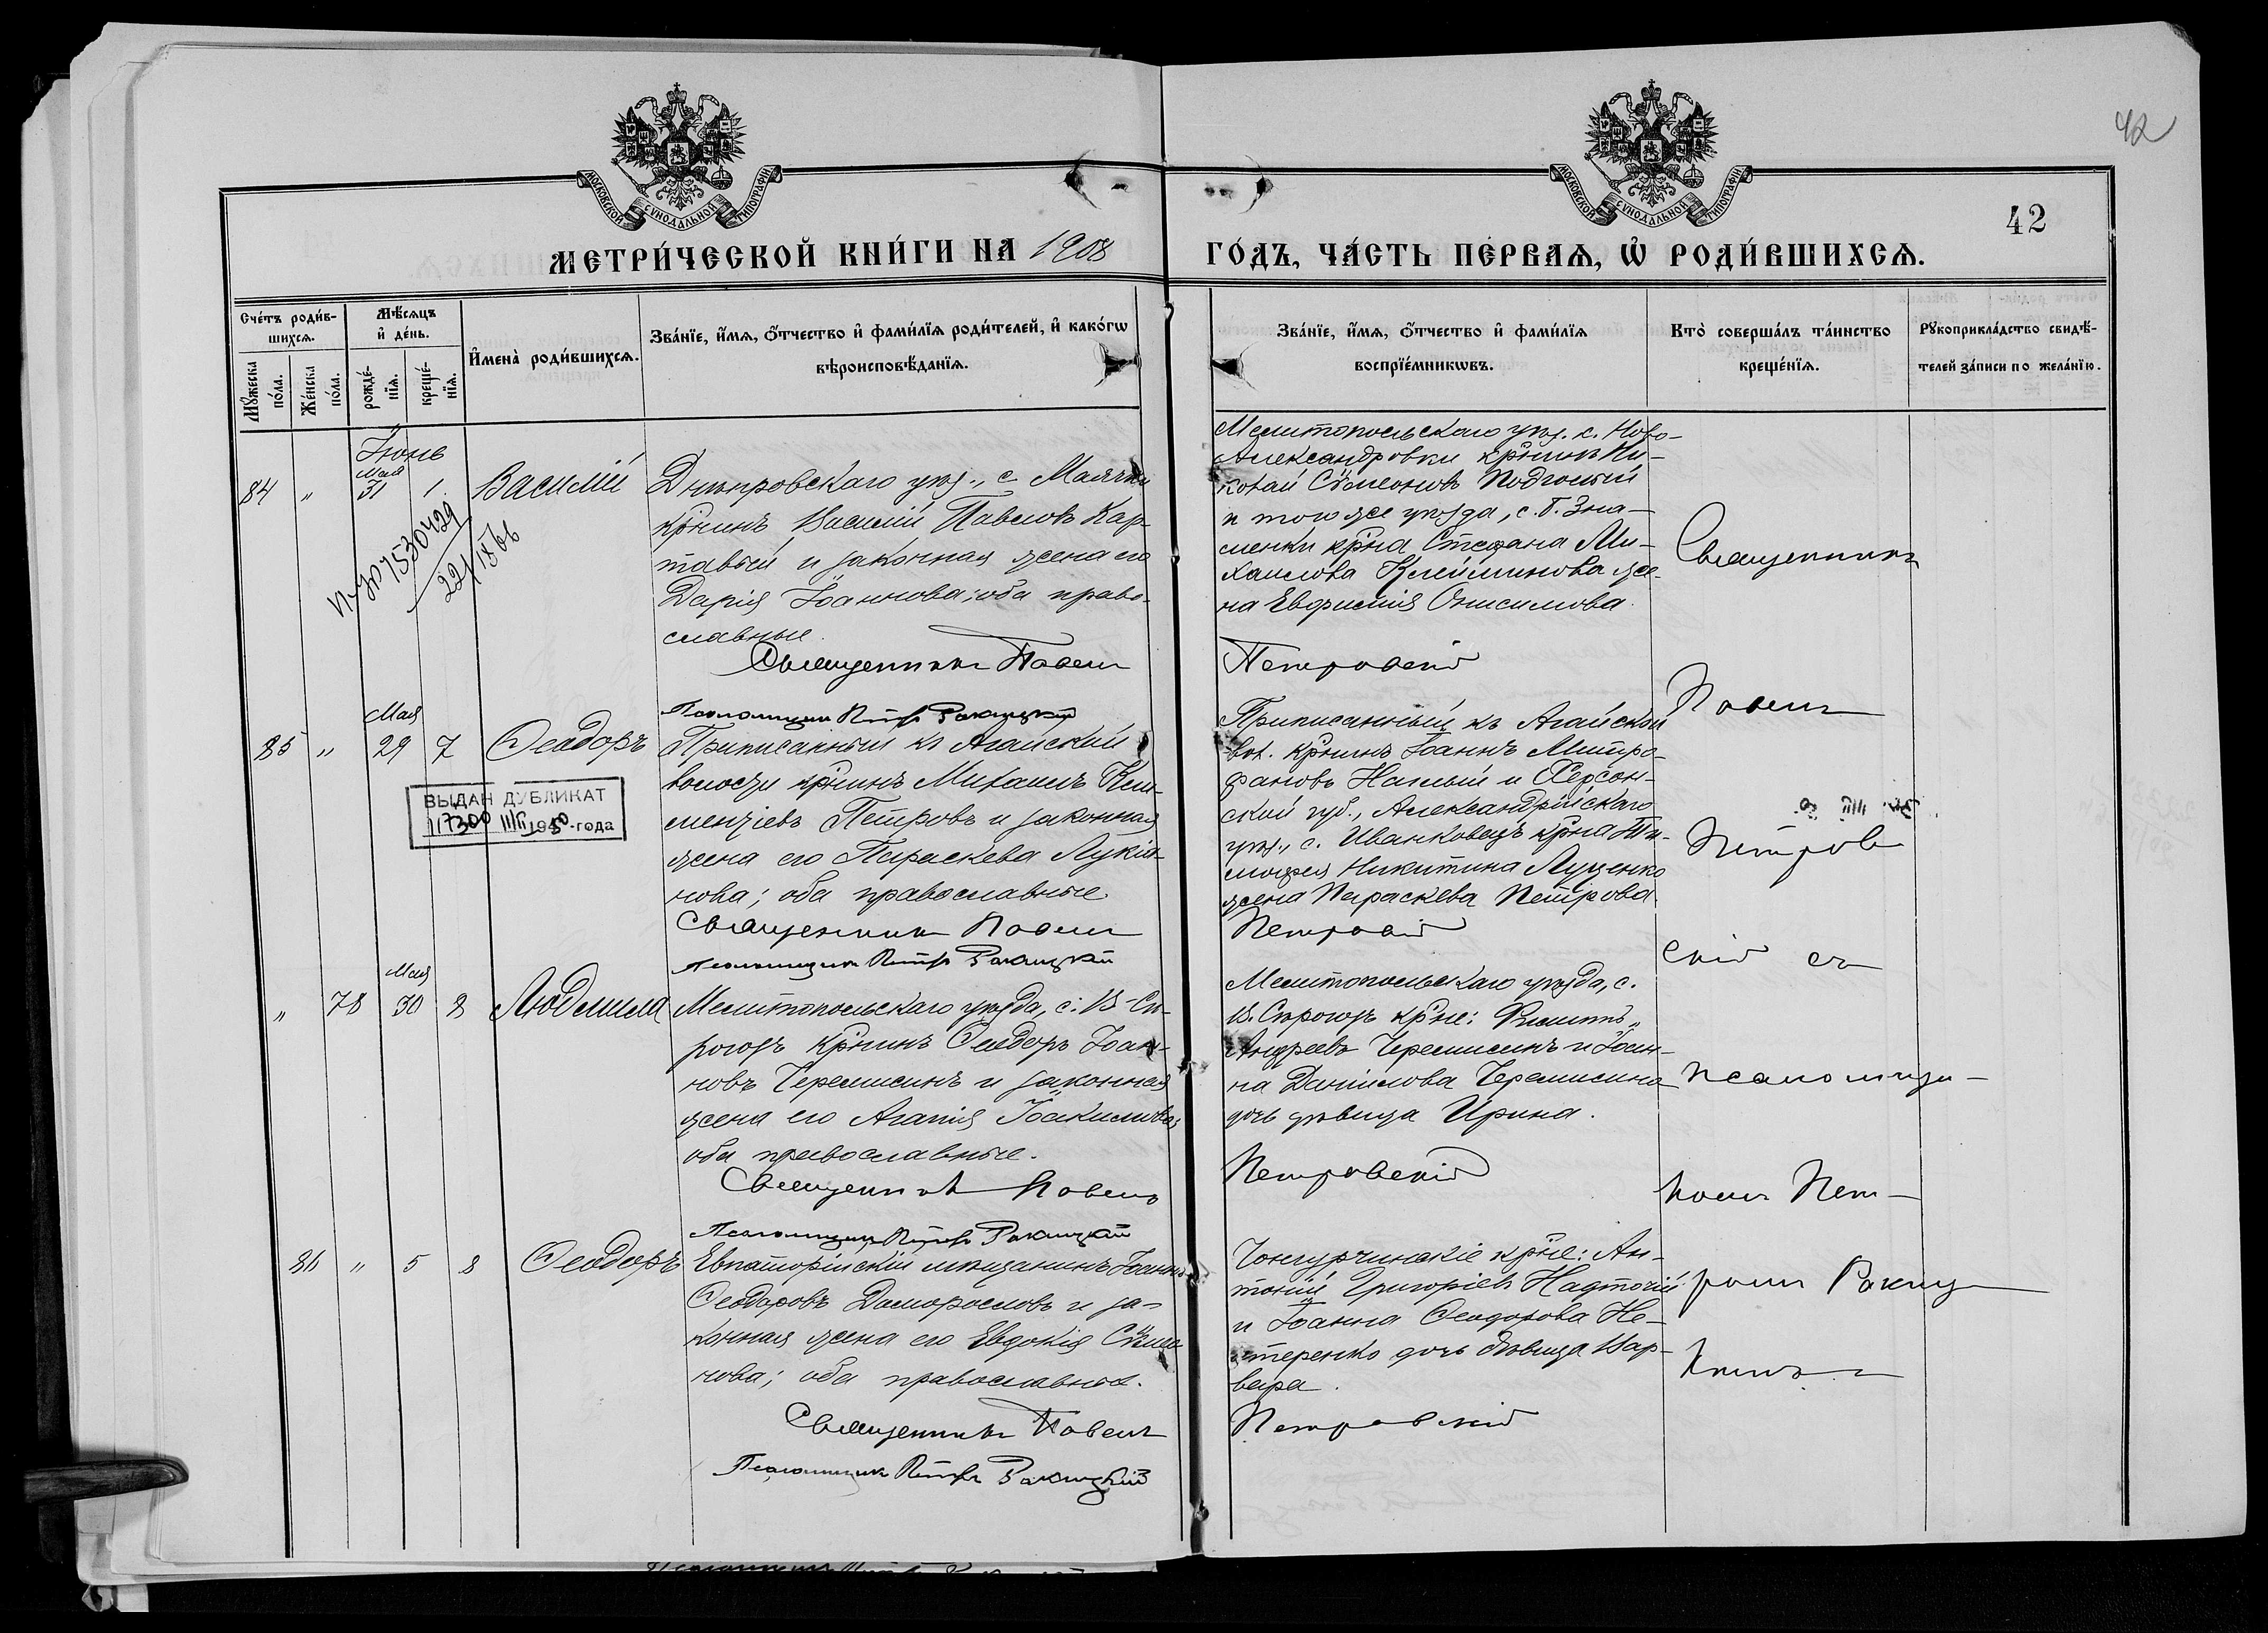 42
МОСКОВСКОЙ СУНОДАЛЬНОЙ ТИПОГРАФІИ
МОСКОВСКОЙ СУНОДАЛЬНОЙ ТИПОГРАФІИ
42
МЕТРИ́ЧЕСКОЙ КНИ́ГИ НА 1908
ГО́ДЪ, ЧА́СТЬ ПЕ́РВАѦ, Ѡ҆ РОДИ́ВШИХСѦ.
Сче́тъ роди́в-
шихсѧ.
Мꙋ́жеска
по́ла.
Же́нска
по́ла.
Мѣ́сѧцъ
и҆ де́нь.
рожде́-
нїѧ.
креще́-
нїѧ.
И҆мена̀ роди́вшихсѧ.
Зва́нїе, и҆́мѧ, ѻ҆́тчество и҆ фами́лїѧ роди́телей, и҆ како́гѡ
вѣроисповѣ́данїѧ.
Зва́нїе, и҆́мѧ, ѻ҆́тчество и҆ фами́лїѧ
воспрїе́мникѡвъ.
Кто̀ соверша́лъ та́инство
креще́нїѧ.
Рꙋкоприкла́дство свидѣ́-
телей за́писи по жела́нїю.
Іюнь
Мая
84 " 31 1. Василій
Днѣпровскаго уѣз., с. Маячки
кр̃нинъ Василій Павловъ Кар-
тавый и законная жена его
Дарія Іоаннова; оба право-
славные.
Священникъ Павелъ
Псаломщикъ Петръ Ракицкій
Мелитопольскаго уѣз. с. Ново-
Александровки кр̃нинъ Ни-
колай Сѷмеоновъ Подгоный
и того же уѣзда, с. Б. Зна-
менки кр̃на Стефана Ми-
хаилова Клейминова же-
на Евфимія Онисимова.
Петровскій
22/IX 66
Мая
85 " 29 7 Ѳеодоръ
ВЫДАН ДУБЛИКАТ
117300 1950-года
Приписанный къ Агайской
волости кр̃нинъ Михаилъ Кли-
ментіевъ Петровъ и законная
жена его Параскева Лукіа-
нова; оба православные.
Священникъ Павелъ
Псаломщикъ Петръ Ракицкій
Приписанный къ Агайской
вол. кр̃нинъ Іоаннъ Митро-
фановъ Наглый и Херсон-
ской губ., Александрійскаго
уѣз., с. Иванковецъ кр̃на Ти-
мофея Никитина Луценко
жена Параскева Петрова.
Петровскій
Мая
" 78 30 8 Людмила
Мелитопольскаго уѣзда, с. В-Сѣ-
рогозъ кр̃нинъ Ѳеодоръ Іоан-
новъ Черемисинъ и законная
жена его Агапія Іоакимова;
оба православные.
Священникъ Павелъ
Псаломщикъ Петръ Ракицкій
Мелитопольскаго уѣзда, с.
В. Сѣрогозъ кр̃не: Филиппъ
Андреевъ Черемисинъ и Іоан-
на Даниілова Черемисина
дочь дѣвица Ирина.
Петровскій
86 " 5 8 Ѳеодоръ
Евпаторійскій мѣщанинъ Іоаннъ
Ѳеодоровъ Доморословъ и за-
конная жена его Евдокія Сѷмео-
нова; оба православные.
Священникъ Павелъ
Псаломщикъ Петръ Ракицкій
Чонгурчинскіе кр̃не: Ан-
тоній Григоріевъ Надточій
и Іоанна Ѳеодорова Не-
стеренко дочь дѣвица Вар-
вара.
Петровскій
Священникъ
Павелъ
Петров
скій съ
псаломщи-
комъ Пет-
ромъ Ракиц
кимъ.